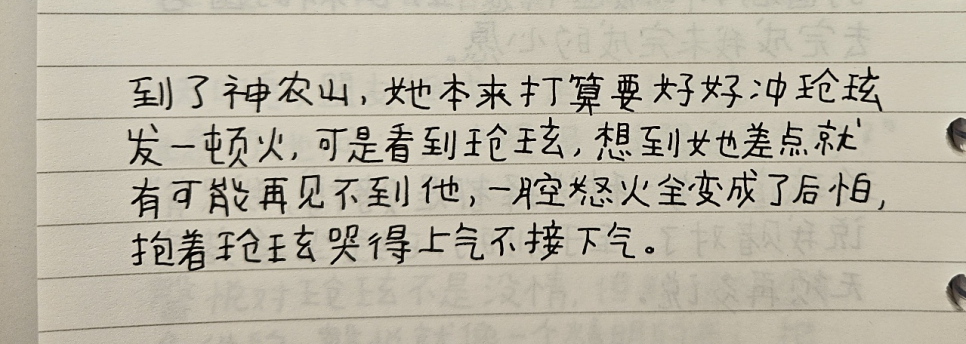 到了神农山，她本来打算要好好冲玱玹
发一顿火，可是看到玱玹，想到她差点就
有可能再见不到他，一腔怒火全变成了后怕，
抱着玱玹哭得上气不接下气。